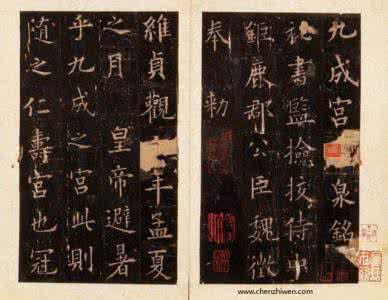 九成宮 泉銘
祕書監撿挍侍中
鉅鹿郡公臣魏徵
奉勑
維貞觀 年孟夏
之月 皇帝避暑
乎九成之宮此則
隨之仁壽宮也冠
www.chenzhiwen.com